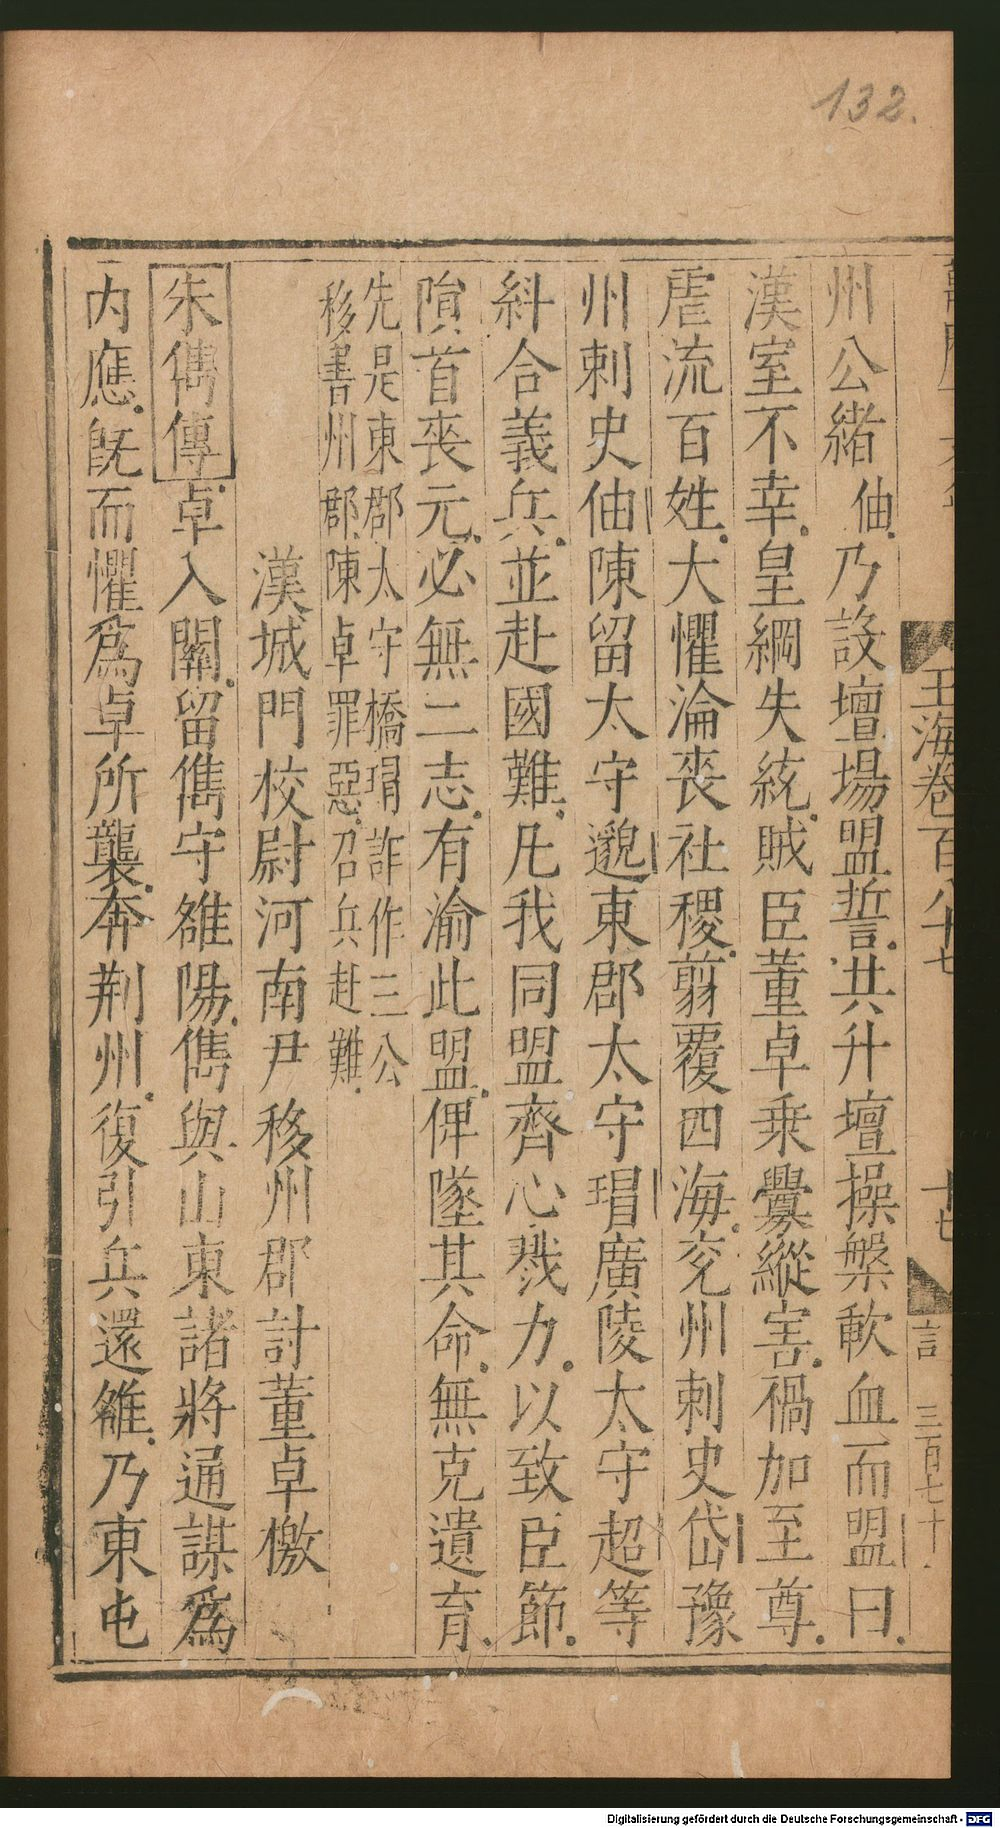 132.
玉海卷百八十七
十七
言
三百七十
州公緒伷乃設壇場盟誓共升壇操槃歃血而盟曰
漢室不幸皇綱失統賊臣董卓乗釁縱害禍加至尊
虐流百姓大懼淪喪社稷翦覆四海兖州刺史岱豫
州刺史伷陳留太守邈東郡太守瑁廣陵太守超等
糾合義兵並赴國難凡我同盟齊心戮力以致臣節
隕首喪元必無二志有渝此盟俾墜其命無克遺育
先是東郡太守橋瑁詐作三公
移書州郡陳卓罪惡召兵赴難
漢城門校尉河南尹移州郡討董卓檄
朱儁傳卓入關留儁守雒陽儁與山東諸將通謀爲
内應旣而懼爲卓所襲奔荆州復引兵還雒乃東屯
Digitalisierung gefördert durch die Deutsche Forschungsgemeinschaft - DFG